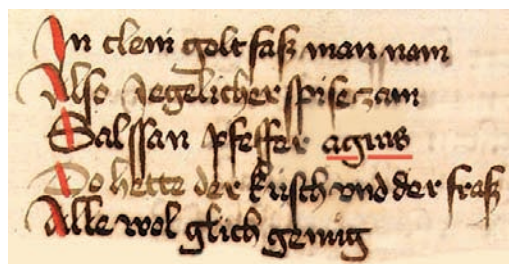 In clein golt fasz man nam
Also Jegelicher spise zam
Salssan pfeffer agras
Do hette der kúsch vnd der frasz
Alle wol glich genúg